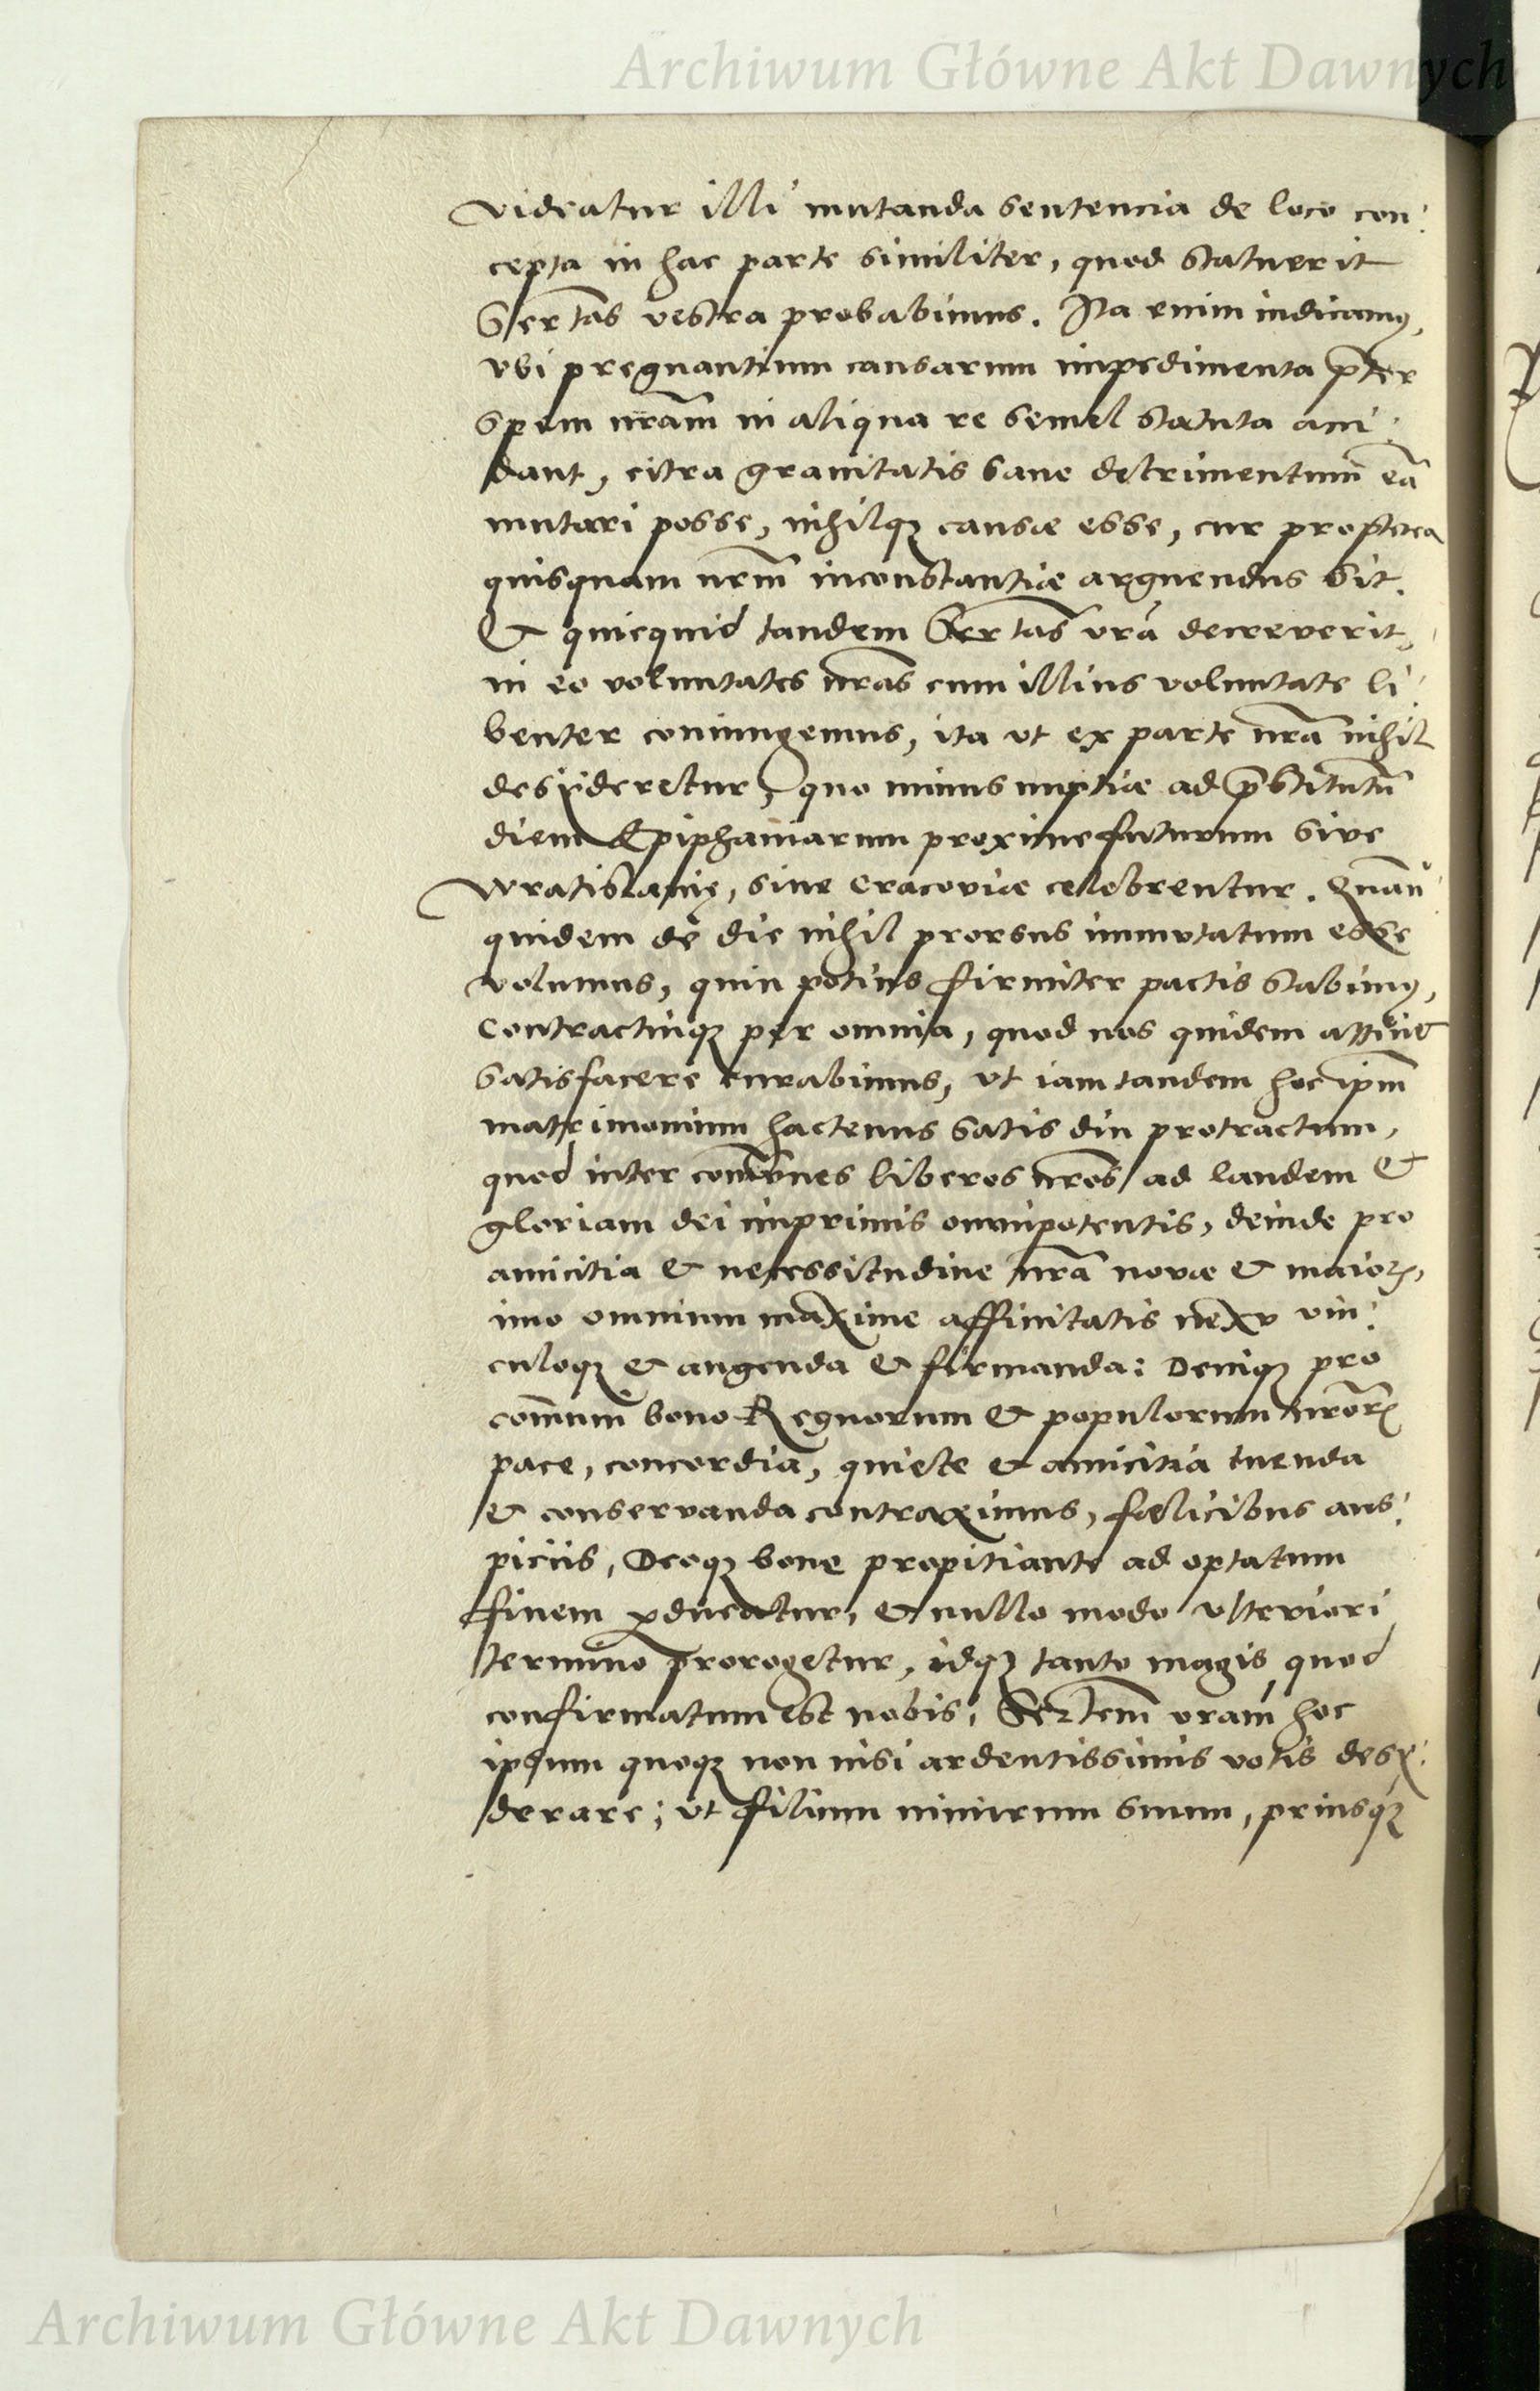 Archiwum Główne Akt Dawnych
videatur illi mutanda sentencia de loco con:
cepta in hac parte similiter, quod statuerit
Sertas vestra probabimus. Ita enim iudicamus,
vbi pregnantium causarum impedimenta pter
spem nram in aliqua re semel statuta acci:
dant, citra grauitatis sane detrimentum eā
mutari posse, nihilqꝫ causæ esse, cur propterea
quisquam nrm̄ inconstantiæ arguendus sit.
Et quicquid tandem Sertas vrā decreverit,
in eo voluntates nras cum illius voluntate li:
benter coniungemus, ita vt ex parte nrā nihil
desyderetur, quo minus nuptiæ ad p̄stitutū
diem Epiphaniarum proxime futurum sive
Wratislauię, siue Cracoviæ celebrentur. Quan
quidem de die nihil prorsus immutatum esse
volumus, quin potius firmiter pactis stabimus,
Contractuiqꝫ per omnia, quod nos quidem attinet
satisfacere curabimus, vt iam tandem hoc ipm̄
matrimonium hactenus satis diu protractum,
quod inter com̄vnes liberos nros ad laudem &
gloriam dei inprimis omnipotentis, deinde pro
amicitia & necessitudine nrā novæ & maior,
imo omnium maxime affinitatis nexv vin:
culoqꝫ & augenda & firmanda: Deniqꝫ pro
com̄uni bono Regnorum & populorum nror
pace, concordia, quiete & amicitia tuenda
& conservanda contraximus, fœlicibus aus:
piciis, Deoqꝫ bene propitiante ad optatum
finem ꝑducatur, & nullo modo vlteriori
termino prorogetur, idqꝫ tanto magis quod
confirmatum est nobis, Sertem̄ vram hoc
ipsum quoqꝫ non nisi ardentissimis votis desy:
derare; vt filium nimirum suum, priusqꝫ
Archiwum Główne Akt Dawnych